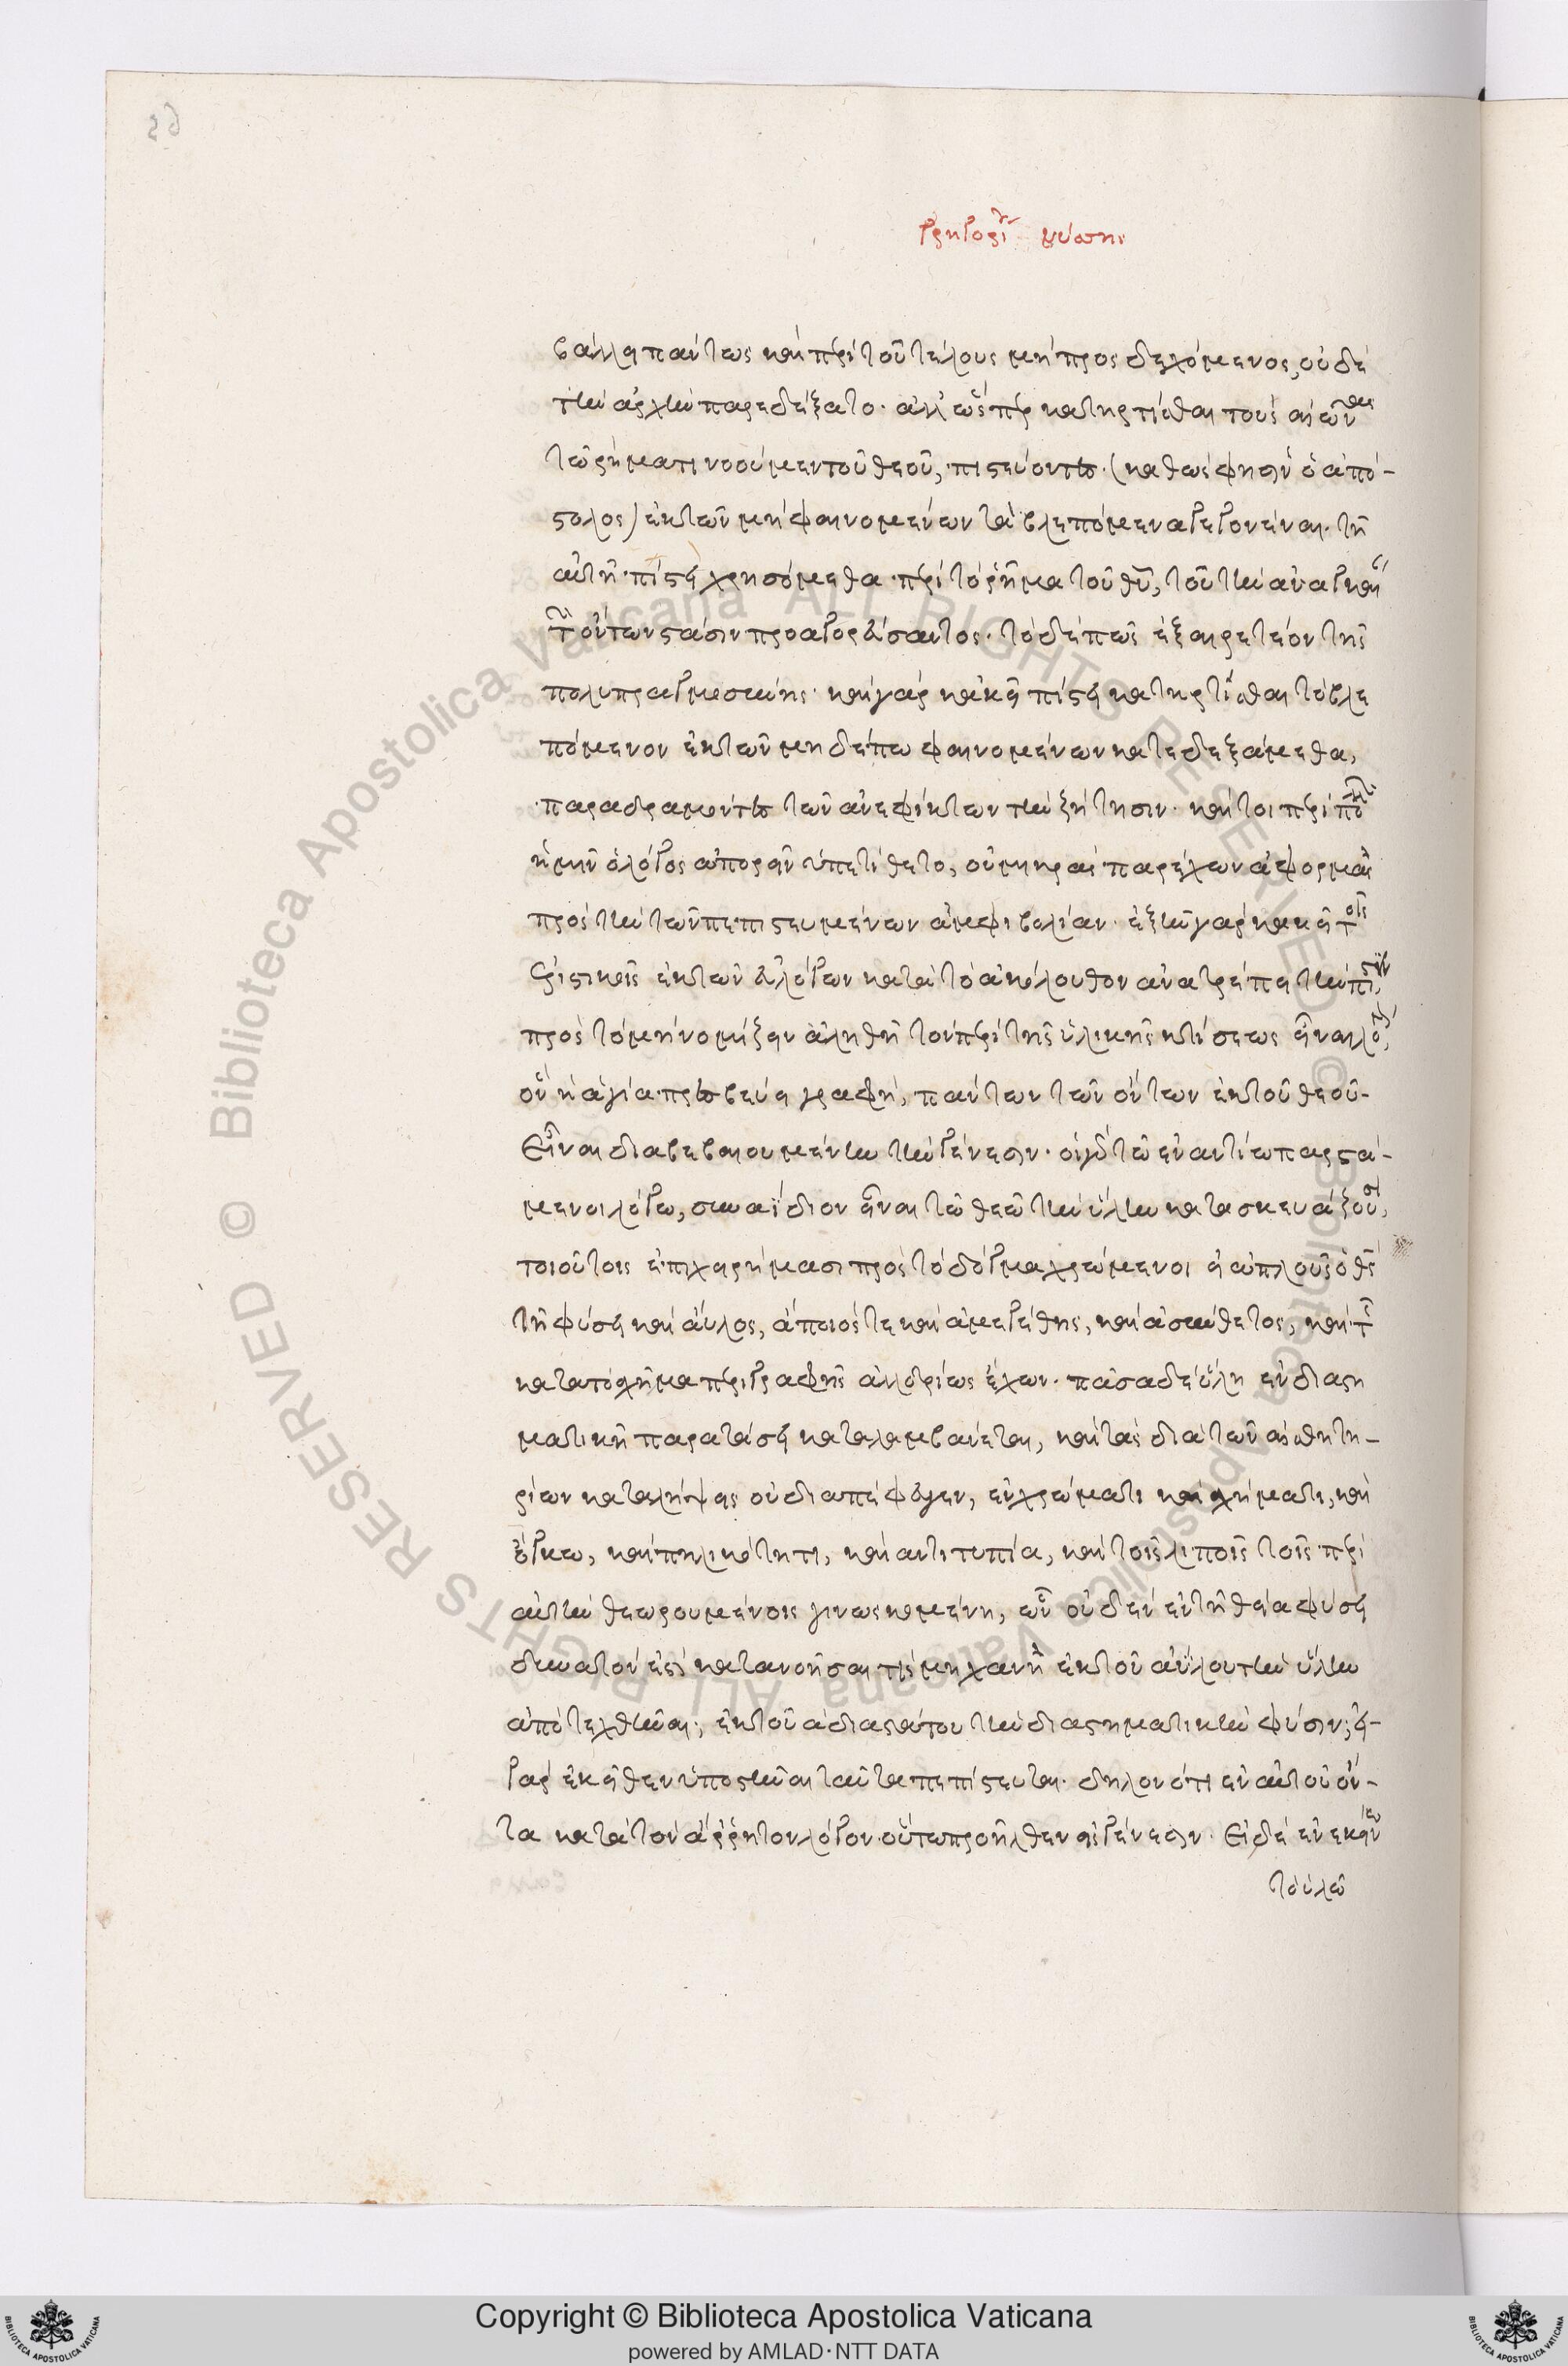 Γρηγορίου νύσης
βάλλει πάντως καὶ περὶ τοῦ τέλους μὴ προσδεχόμενος, οὐδὲ
τὴν ἀρχὴν παρεδέξατο. ἀλλ' ὥσπερ κατηρτίσθαι τοὺς αἰῶνας
τῷ ῥήματι νοοῦμεν τοῦ θεοῦ, πιστεύοντες (καθὼς φησὶν ὁ ἀπό-
στολος) ἐκ τῶν μὴ φαινομένων τὰ βλεπόμενα γεγονέναι. τῇ
αὐτῇ πίστει χρησόμεθα περὶ τὸ ῥῆμα τοῦ θυ, τοῦ τὴν ἀναγκαίαν
τῶν ὄντων στάσιν προαγορεύσαντος. τὸ δὲ πῶς ἐξαιρετέον τῆς
πολυπραγμοσύνης. καὶ γὰρ κἀκεῖ πίστει κατηρτίσθαι τὸ βλε
πόμενον ἐκ τῶν μηδέπω φαινομένων κατεδεξάμεθα,
παραδραμόντες τῶν ἀνεφίκτων τὴν ζήτησιν. καίτοι περὶ πολλῶν
ἡμῖν ὁ λόγος ἀπορεῖν ὑπετίθετο, οὐ μικρὰς παρέχων ἀφορμὰς
πρὸς τὴν τῶν πεπιστευμένων ἀμφιβολίαν. ἐξῆν γὰρ κἀκεῖ τοῖς
ἐριστικοῖς ἐκ τῶν εὐλόγων κατὰ τὸ ἀκόλουθον ἀνατρέπειν τὴν πίστιν,
πρὸς τὸ μὴ νομίζειν ἀληθῆ τὸν περὶ τῆς ὑλικῆς κτίσεως εἶναι λόγον,
ὃν ἡ ἁγία πρεσβεύει γραφή, πάντων τῶν ὄντων ἐκ τοῦ θεοῦ-
Εἶναι διαβεβαιουμένη τὴν γένεσιν. οἱ γὰρ τῷ ἐναντίῳ παριστά-
μενοι λόγῳ, συναΐδιον εἶναι τῷ θεῷ τὴν ὕλην κατασκευάζουσι,
τοιούτοις ἐπιχειρήμασι πρὸς τὸ δόγμα χρώμενοι εἰ ἁπλοῦς ὁ θς
τῇ φύσει καὶ ἄυλος, ἄποιός τε καὶ ἀμεγέθης, καὶ ἀσύνθετος, καὶ τῆς
κατὰ τὸ σχῆμα περιγραφῆς ἀλλοτρίως ἔχων. πᾶσα δὲ ὕλη ἐν διαστη
ματικῇ παρατάσει καταλαμβάνεται, καὶ τὰς διὰ τῶν αἰσθητη-
ρίων καταλήψεις οὐ διαπέφευγεν, ἐν χρώματι καὶ σχήματι, καὶ
ὄγκῳ, καὶ πηλικότητι, καὶ ἀντιτυπίᾳ, καὶ τοῖς λοιποῖς τοῖς περὶ
αὐτὴν θεωρουμένοις γινωσκομένη, ὧν οὐδὲν ἐν τῇ θείᾳ φύσει
δυνατόν ἐστι κατανοῆσαι τίς μηχανὴ ἐκ τοῦ ἀΰλου τὴν ὕλην
ἀποτεχθῆναι; ἐκ τοῦ ἀδιαστάτου τὴν διαστηματικὴν φύσιν; εἰ-
γὰρ ἐκεῖθεν ὑποστῆναι ταῦτα πεπίστευται. δηλονότι ἐν αὐτοῦ ὄν-
τα κατὰ τὸν ἄρρητον λόγον. οὕτω προῆλθεν εἰς γένεσιν. Εἰ δὲ ἐν ἐκείνῳ
τὸ ὑλῶ